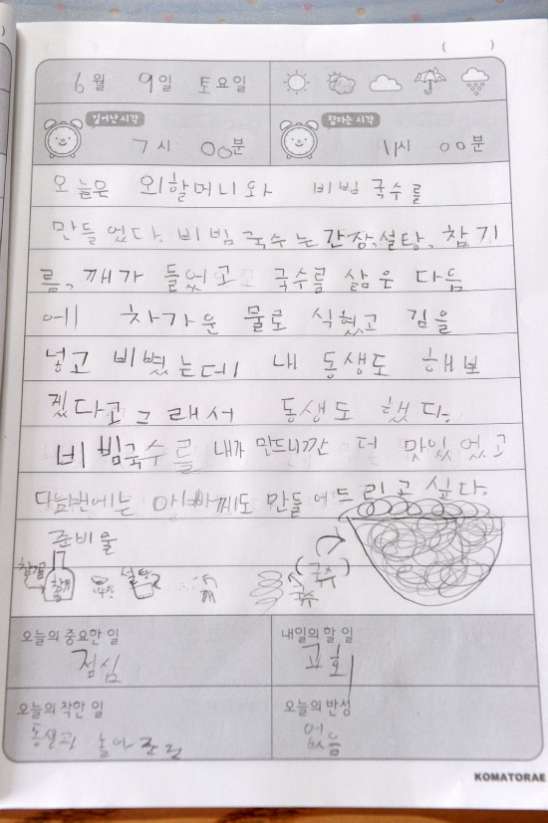 ( )
6월 9일 토요일
일어난시각 잠자는시각
7시 00분 11시 00분
오늘은 외할머니와 비빔국수를
만들었다. 비빔국수는 간장, 설탕, 참기
름, 깨가 들었고 국수를 삶은 다듬
에 차가운 물로 식혔고 김을
넣고 비볐는데 내 동생도 해보
겠다고 그래서 동생도 했다.
비빔국수를 내가 만드니깐 더 맛있었고
다음번에는 아빠께도 만들어드리고 싶다.
준비물
참기름 설탕 깨 국수 (국수)
오늘의 중요한 일 내일의 할 일
점심 교회
오늘의 착한 일 오늘의 반성
동생과 놀아준것 없음
KOMATORAE